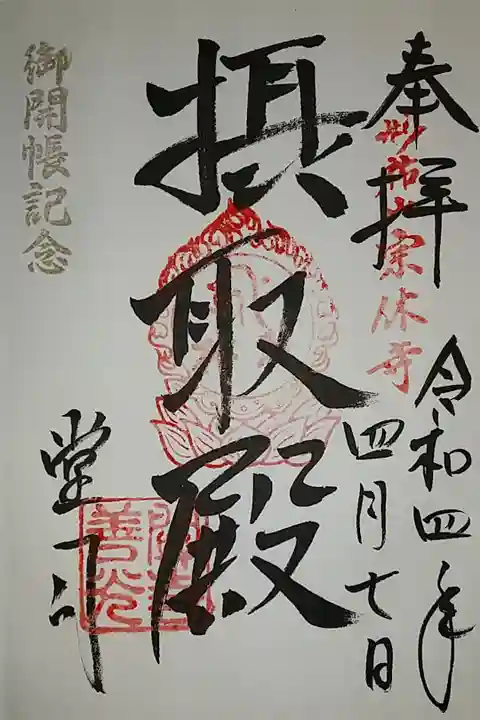 奉拝
宗休寺
令和四年
四月七日
摂取殿
御開帳記念
堂司